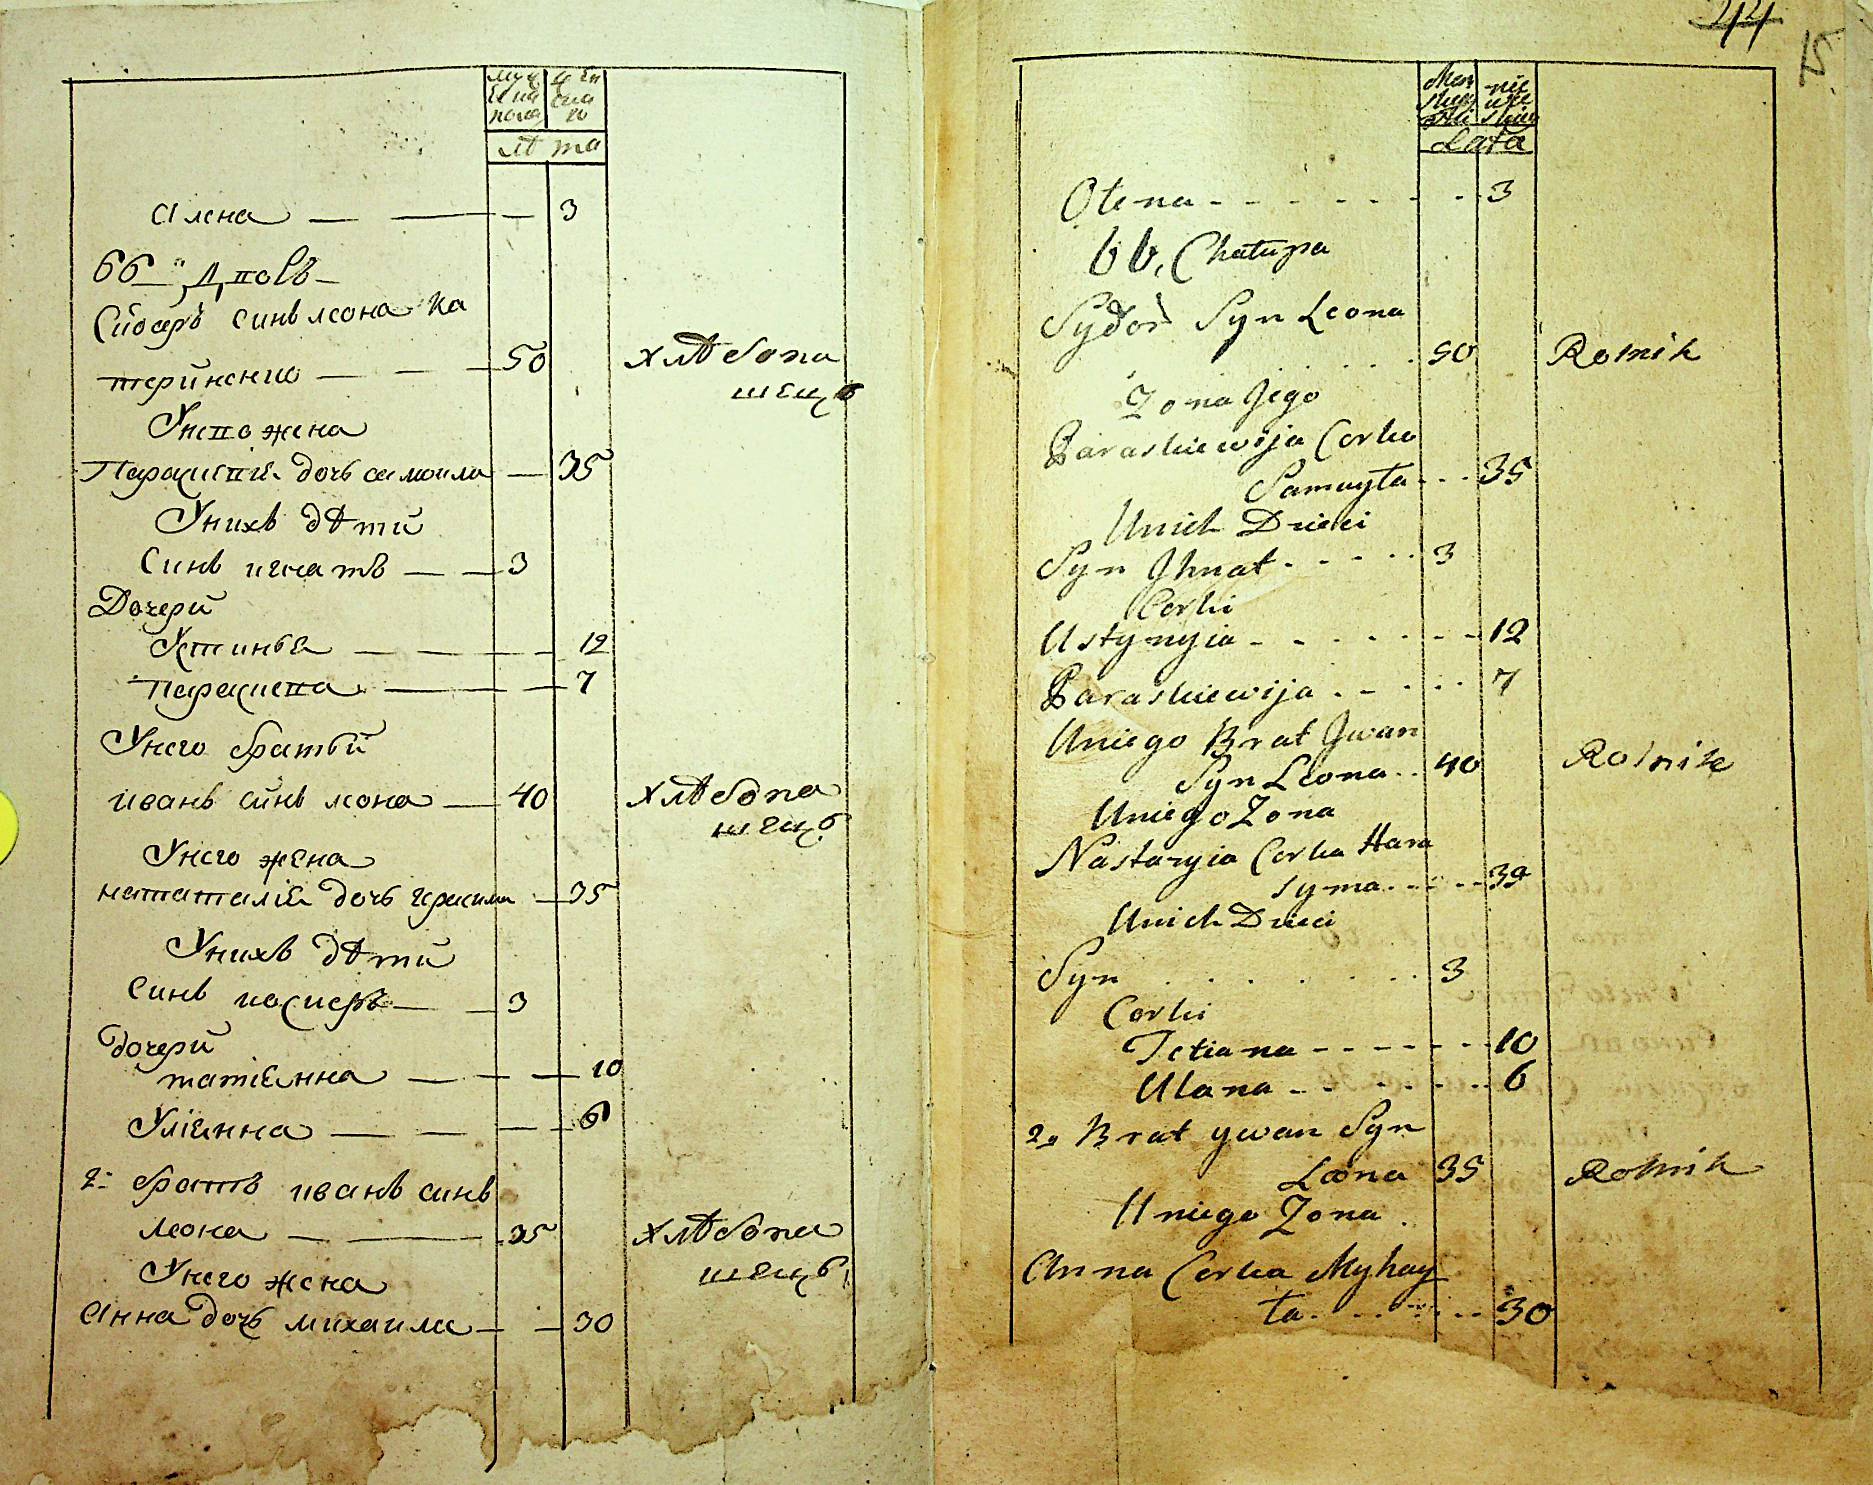 муж
ескa
пола
жен
ска
го
лѣта
алена — — — 3
66 „ Дворъ
Сидоръ синъ леона ка
теринскию — — — 50 хлѣбопа
шецъ
У него жена
Параскевiя дочь самоила — 35
У нихъ дѣти
Синъ игнатъ — — 3
Дочери
Устинья — — — — 12
параскева — — — 7
У него братья
иванъ синъ леона — 40 хлѣбопа
шецъ
У него жена
наташталiя дочь герасима — 35
У нихъ дѣти
Синъ иосифъ — — 3
дочери
татiянна — — — 10
Улiянна — — — — 6
2: братъ иванъ синъ
леона — — 35 хлѣбопа
шецъ
У него жена
Анна дочь михаила — — 30
44
15
Męz
skiey
płci
nie
wie
skiey
Lata
Olena - - - - - - - 3
66, Chałupa
Sydor Syn Leona
50 Rolnik
Zona Jego
Paraskiewija Corka
Samuyła - - - 35
Unich Dzieci
Syn Jhnat - - - - - 3
Corki
Ustynyia - - - - - - - 12
Paraskiewija - - - - - 7
Uniego Brat Jwan
Syn Leona - - 40 Rolnik
Uniego Zona
Nastazyia Corka Hara
syma - - - - - 35
Unich Dzieci
Syn - - - - - - 3
Corki
Tetiana - - - - - - - 10
Ulana - - - - - - - 6
2. Brat ywan Syn
Leona 35 Rolnik
Uniego Zona
Anna Corka Myhay
ła - - - - - - 30